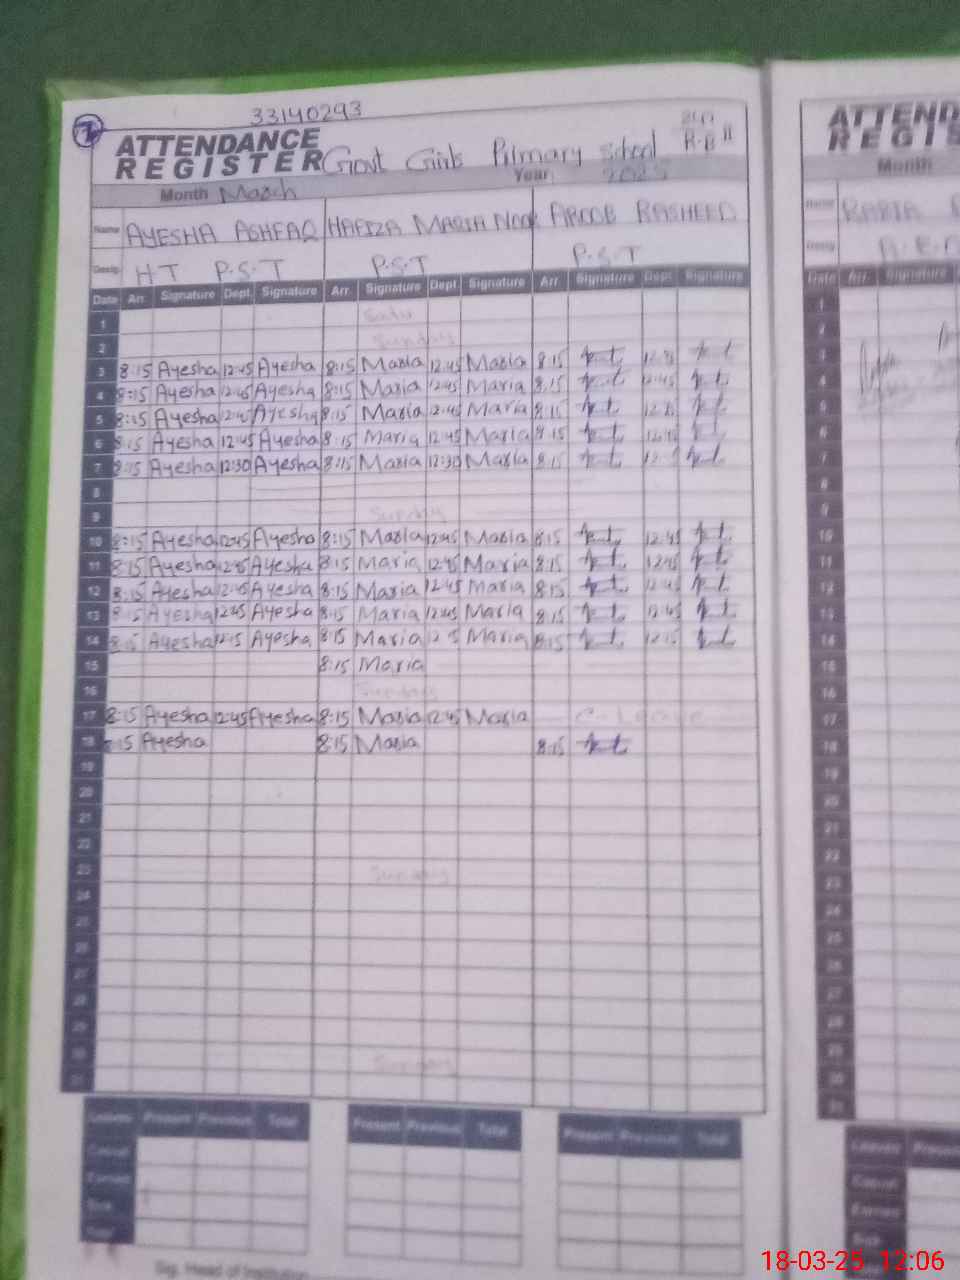 7
33140293
ATTENDANCE
REGISTER Govt Girls Primary School R-B II
Month March Year 2025
Name AYESHA ASHFAQ HAFIZA MARIA NOOR AROOB RASHEED
Desig. HT P.S.T P.S.T P.S.T
Date Arr. Signature Dept. Signature Arr. Signature Dept. Signature Arr Signature Dept. Signature
1
2 Sunday
3 8:15 Ayesha 12:45 Ayesha 8:15 Maria 12:45 Maria 8:15
4 8:15 Ayesha 12:45 Ayesha 8:15 Maria 12:45 Maria 8:15 12:45
5 8:15 Ayesha 12:45 Ayesha 8:15 Maria 12:45 Maria 8:15
6 8:15 Ayesha 12:45 Ayesha 8:15 Maria 12:45 Maria 8:15 12:45
7 8:15 Ayesha 12:30 Ayesha 8:15 Maria 12:30 Maria 8:15
8
9 Sunday
10 8:15 Ayesha 12:45 Ayesha 8:15 Maria 12:45 Maria 8:15 12:45
11 8:15 Ayesha 12:45 Ayesha 8:15 Maria 12:45 Maria 8:15 12:45
12 8:15 Ayesha 12:45 Ayesha 8:15 Maria 12:45 Maria 8:15 12:45
13 8:15 Ayesha 12:45 Ayesha 8:15 Maria 12:45 Maria 8:15 12:45
14 8:15 Ayesha 12:15 Ayesha 8:15 Maria Maria 8:15 12:15
15 8:15 Maria
16 Sunday
17 8:15 Ayesha 12:45 Ayesha 8:15 Maria 12:45 Maria C-Leave
18 8:15 Ayesha 8:15 Maria 8:15
19
20
21
22
23 Sunday
24
25
26
27
28
29
30 Sunday
31
Leaves Present Previous Total Present Previous Total Present Previous Total
Casual
Earned
Sick
Total
Sig. Head of Institution
ATTEND
REGIS
Month
Name RABIA
Desig. A.E.O
Date Arr. Signature
1
2
3
4
5
6
7
8
9
10
11
12
13
14
15
16
17
18
19
20
21
22
23
24
25
26
27
28
29
30
31
Leaves
Casual
Earned
Sick
18-03-25 12:06